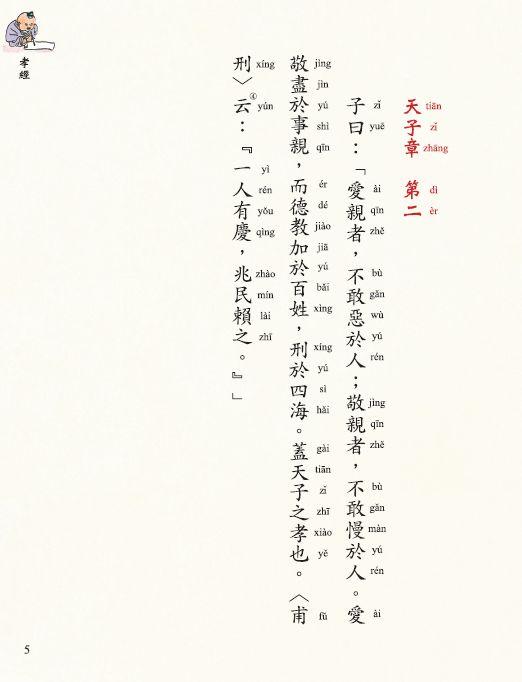 孝經
天子章　第二
tiān zǐ zhāng dì èr
子曰：「愛親者，不敢惡於人；敬親者，不敢慢於人。愛
zǐ yuē ài qīn zhě bù gǎn wù yú rén jìng qīn zhě bù gǎn màn yú rén ài
敬盡於事親，而德教加於百姓，刑於四海。蓋天子之孝也。〈甫
jìng jìn yú shì qīn ér dé jiào jiā yú bǎi xìng xíng yú sì hǎi gài tiān zǐ zhī xiào yě fǔ
刑〉④云：『一人有慶，兆民賴之。』」
xíng yún yì rén yǒu qìng zhào mín lài zhī
5